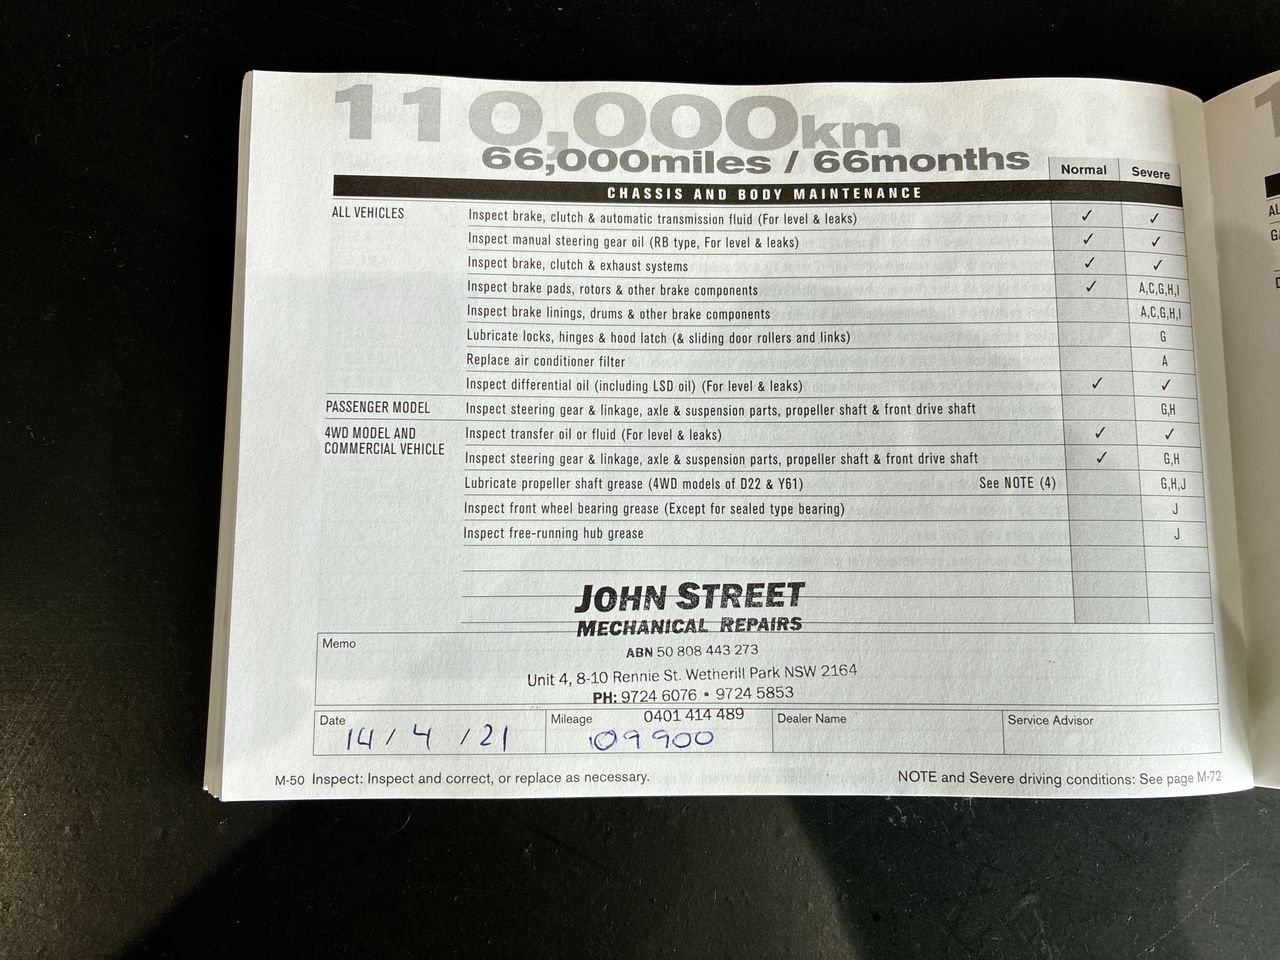 110,000km
66,000miles / 66months
Normal Severe
CHASSIS AND BODY MAINTENANCE
ALL VEHICLES Inspect brake, clutch & automatic transmission fluid (For level & leaks) ✓ ✓
Inspect manual steering gear oil (RB type, For level & leaks) ✓ ✓
Inspect brake, clutch & exhaust systems ✓ ✓
Inspect brake pads, rotors & other brake components ✓ A,C,G,H,I
Inspect brake linings, drums & other brake components A,C,G,H,I
Lubricate locks, hinges & hood latch (& sliding door rollers and links) G
Replace air conditioner filter A
Inspect differential oil (including LSD oil) (For level & leaks) ✓ ✓
PASSENGER MODEL Inspect steering gear & linkage, axle & suspension parts, propeller shaft & front drive shaft G,H
4WD MODEL AND Inspect transfer oil or fluid (For level & leaks) ✓ ✓
COMMERCIAL VEHICLE Inspect steering gear & linkage, axle & suspension parts, propeller shaft & front drive shaft ✓ G,H
Lubricate propeller shaft grease (4WD models of D22 & Y61) See NOTE (4) G,H,J
Inspect front wheel bearing grease (Except for sealed type bearing) J
Inspect free-running hub grease J
JOHN STREET
MECHANICAL REPAIRS
Memo
ABN 50 808 443 273
Unit 4, 8-10 Rennie St. Wetherill Park NSW 2164
PH: 9724 6076 • 9724 5853
0401 414 489
Date Mileage Dealer Name Service Advisor
14 / 4 / 21 109900
M-50 Inspect: Inspect and correct, or replace as necessary. NOTE and Severe driving conditions: See page M-72